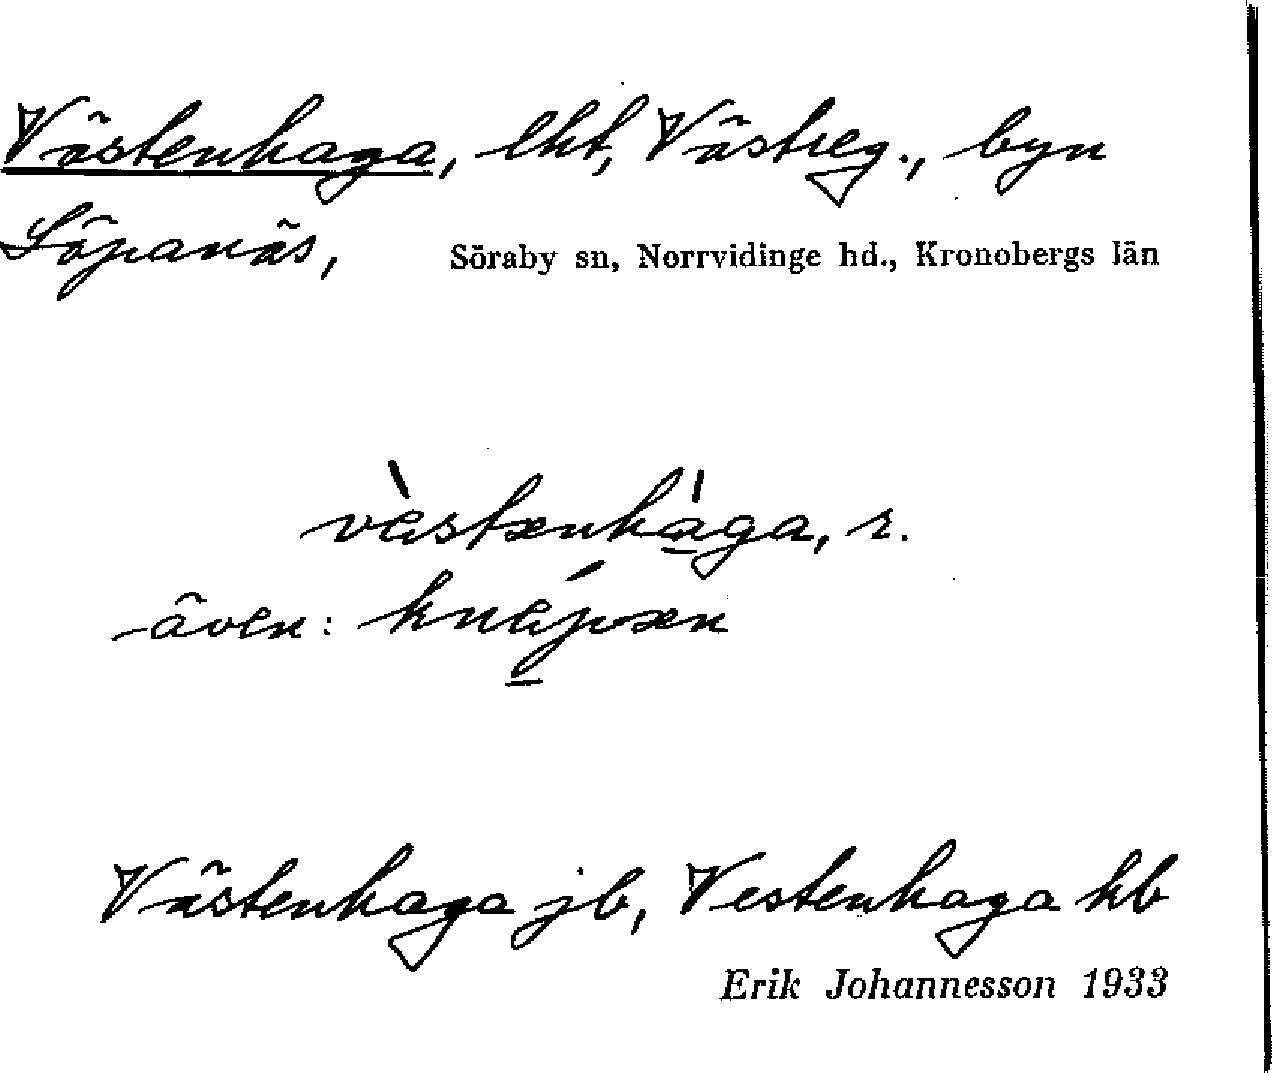 Västenhaga, lht, Västreg., byn
Löpanäs, Söraby sn, Norrvidinge hd., Kronobergs län
även:
Västenhaga jb, Vestenhaga kb
Erik Johannesson 1933